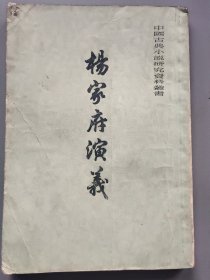 中國古典小說研究資料叢書
楊家府演義